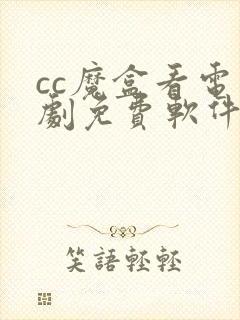 cc魔盒看電
劇免費軟件
笑語輕輕